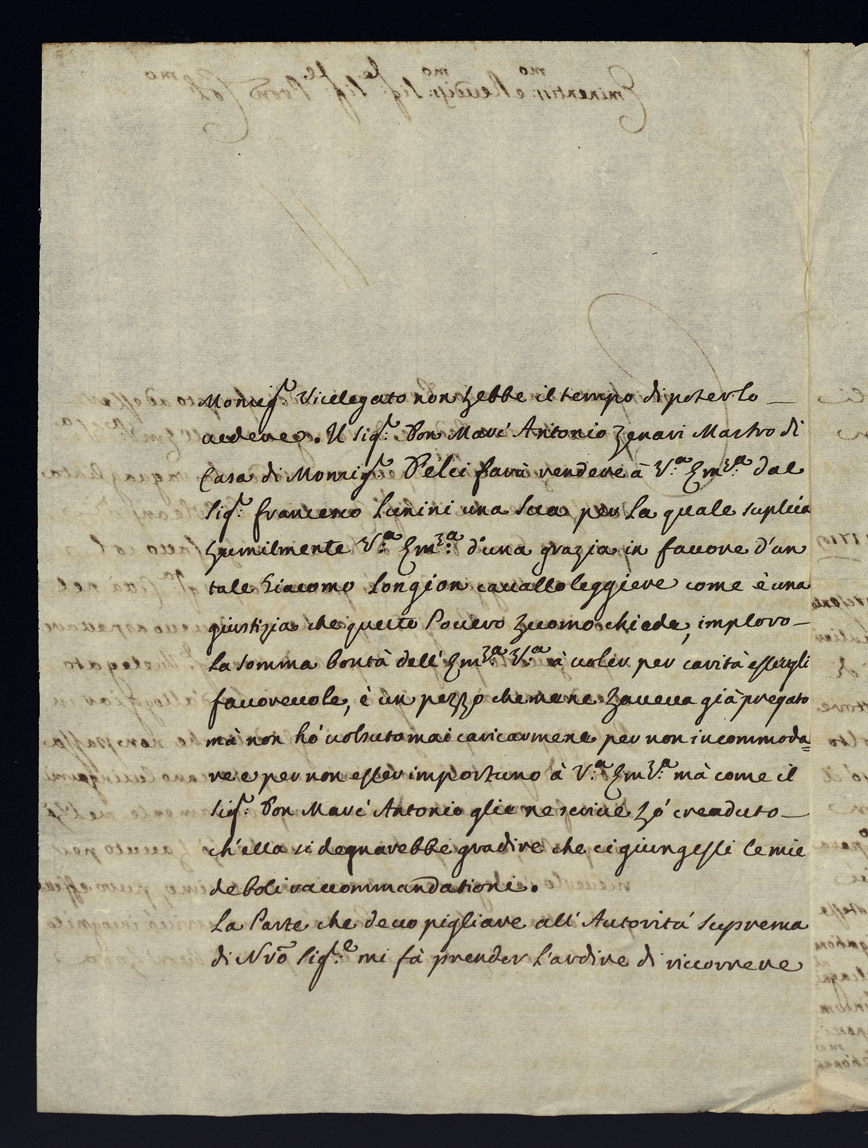 Monsig.r Vicelegato non hebbe il tempo di poterlo
uedere. Il Sig.r Don Marc' Antonio Zenari Mastro di
Casa di Monsig.r Pelci farà rendere à V.a Em.za dal
Sig.r Francesco Lunini una sua per La quale suplica
humilmente V.a Em.za d'una grazia in fauore d'un
tale Giacomo Longion cauallo leggiere come è una
giustizia che questo Pouero huomo chiede, imploro
La somma bontà dell' Em.za V.a à uoler per carità essergli
fauoreuole, è un pezzo che me ne haueua già pregato
mà non hò uolsuto mai caricarmene per non incommoda=
re e per non esser importuno à V.a Em.za mà come il
Sig.r Don Marc' Antonio glie ne scriue hò creduto
ch'ella si degnarebbe gradire che ci giungessi le mie
deboli raccommandationi.
La Parte che deuo pigliare all' Autorità suprema
di Nrõ Sig.re mi fà prender L'ardire di riccorrere